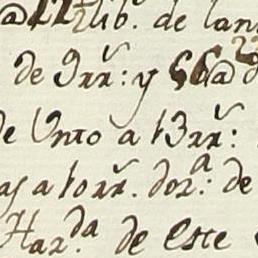 lib.ˢ de lan
de 9 rr.ˢ: y
de Unto a 13 rr.ˢ:
as a 10 rr.ˢ. doz.ᵃ: de
Har.ᵈᵃ de Este